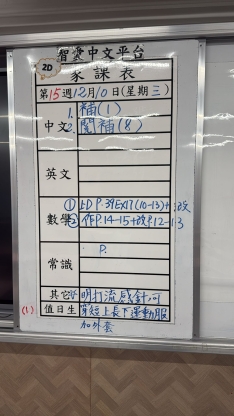 智雲中文平台
2D
家課表
第15週12月10日(星期三)
中文
1. 補(1)
2. 閱補(8)
英文
數學
① ED P.39EX17(10-13)+改
② 作P.14-15+改P.12-13
常識
P.
其它
明打流感針
值日生
穿短上長下運動服
(1)
加外套